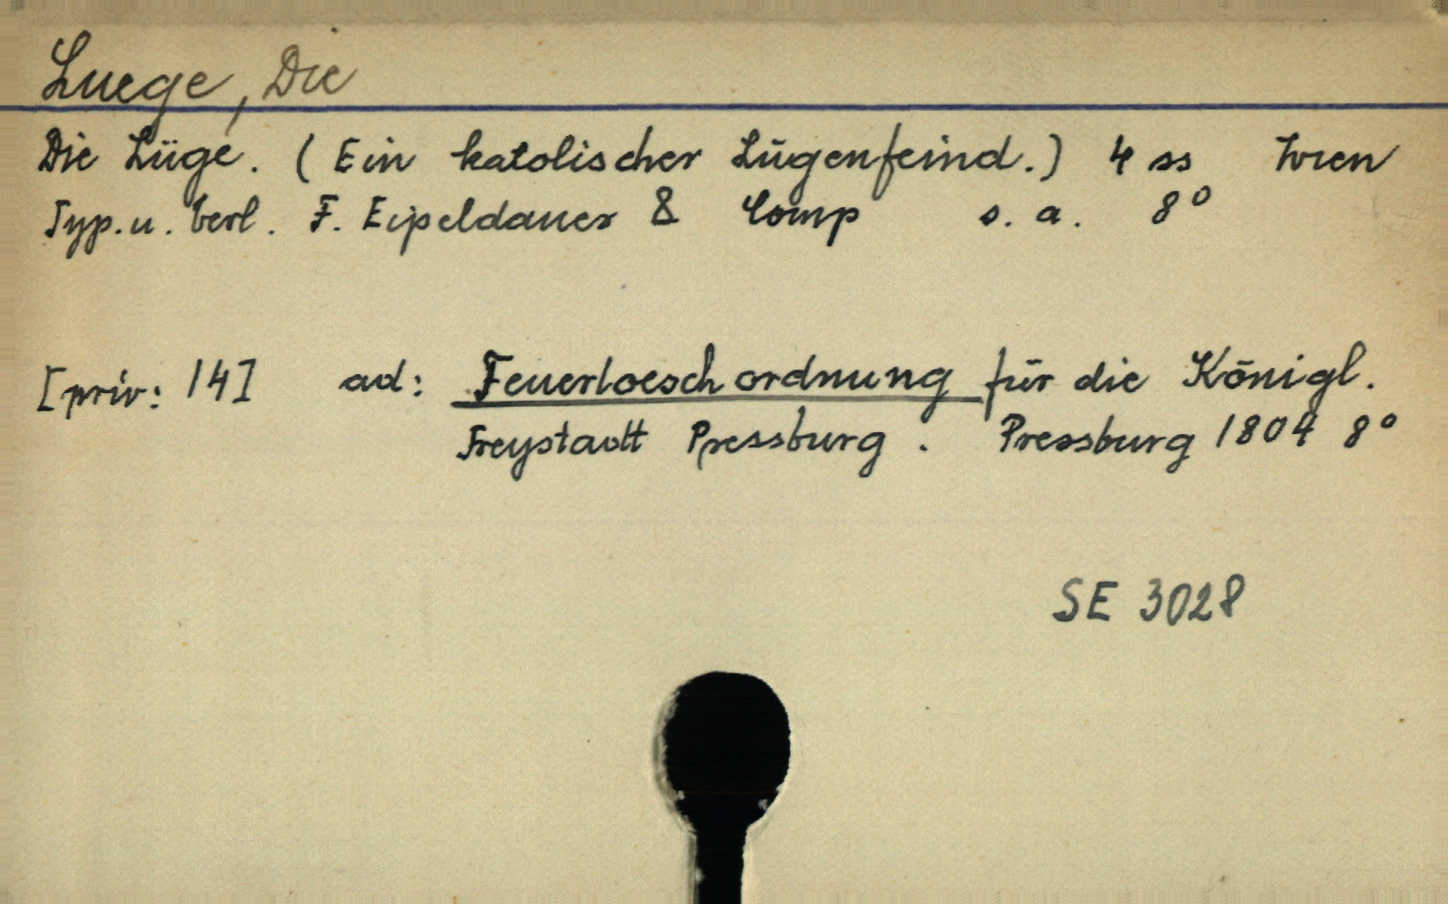 Luege, Die
Die Lüge. (Ein katolischer Lügenfeind.) 4 ss Wien
Typ. u. Verl. F. Eipeldauer & Comp s. a. 8°
[priv: 14] ad: Feuerloeschordnung für die Königl.
Freystadt Pressburg. Pressburg 1804 8°
SE 3028